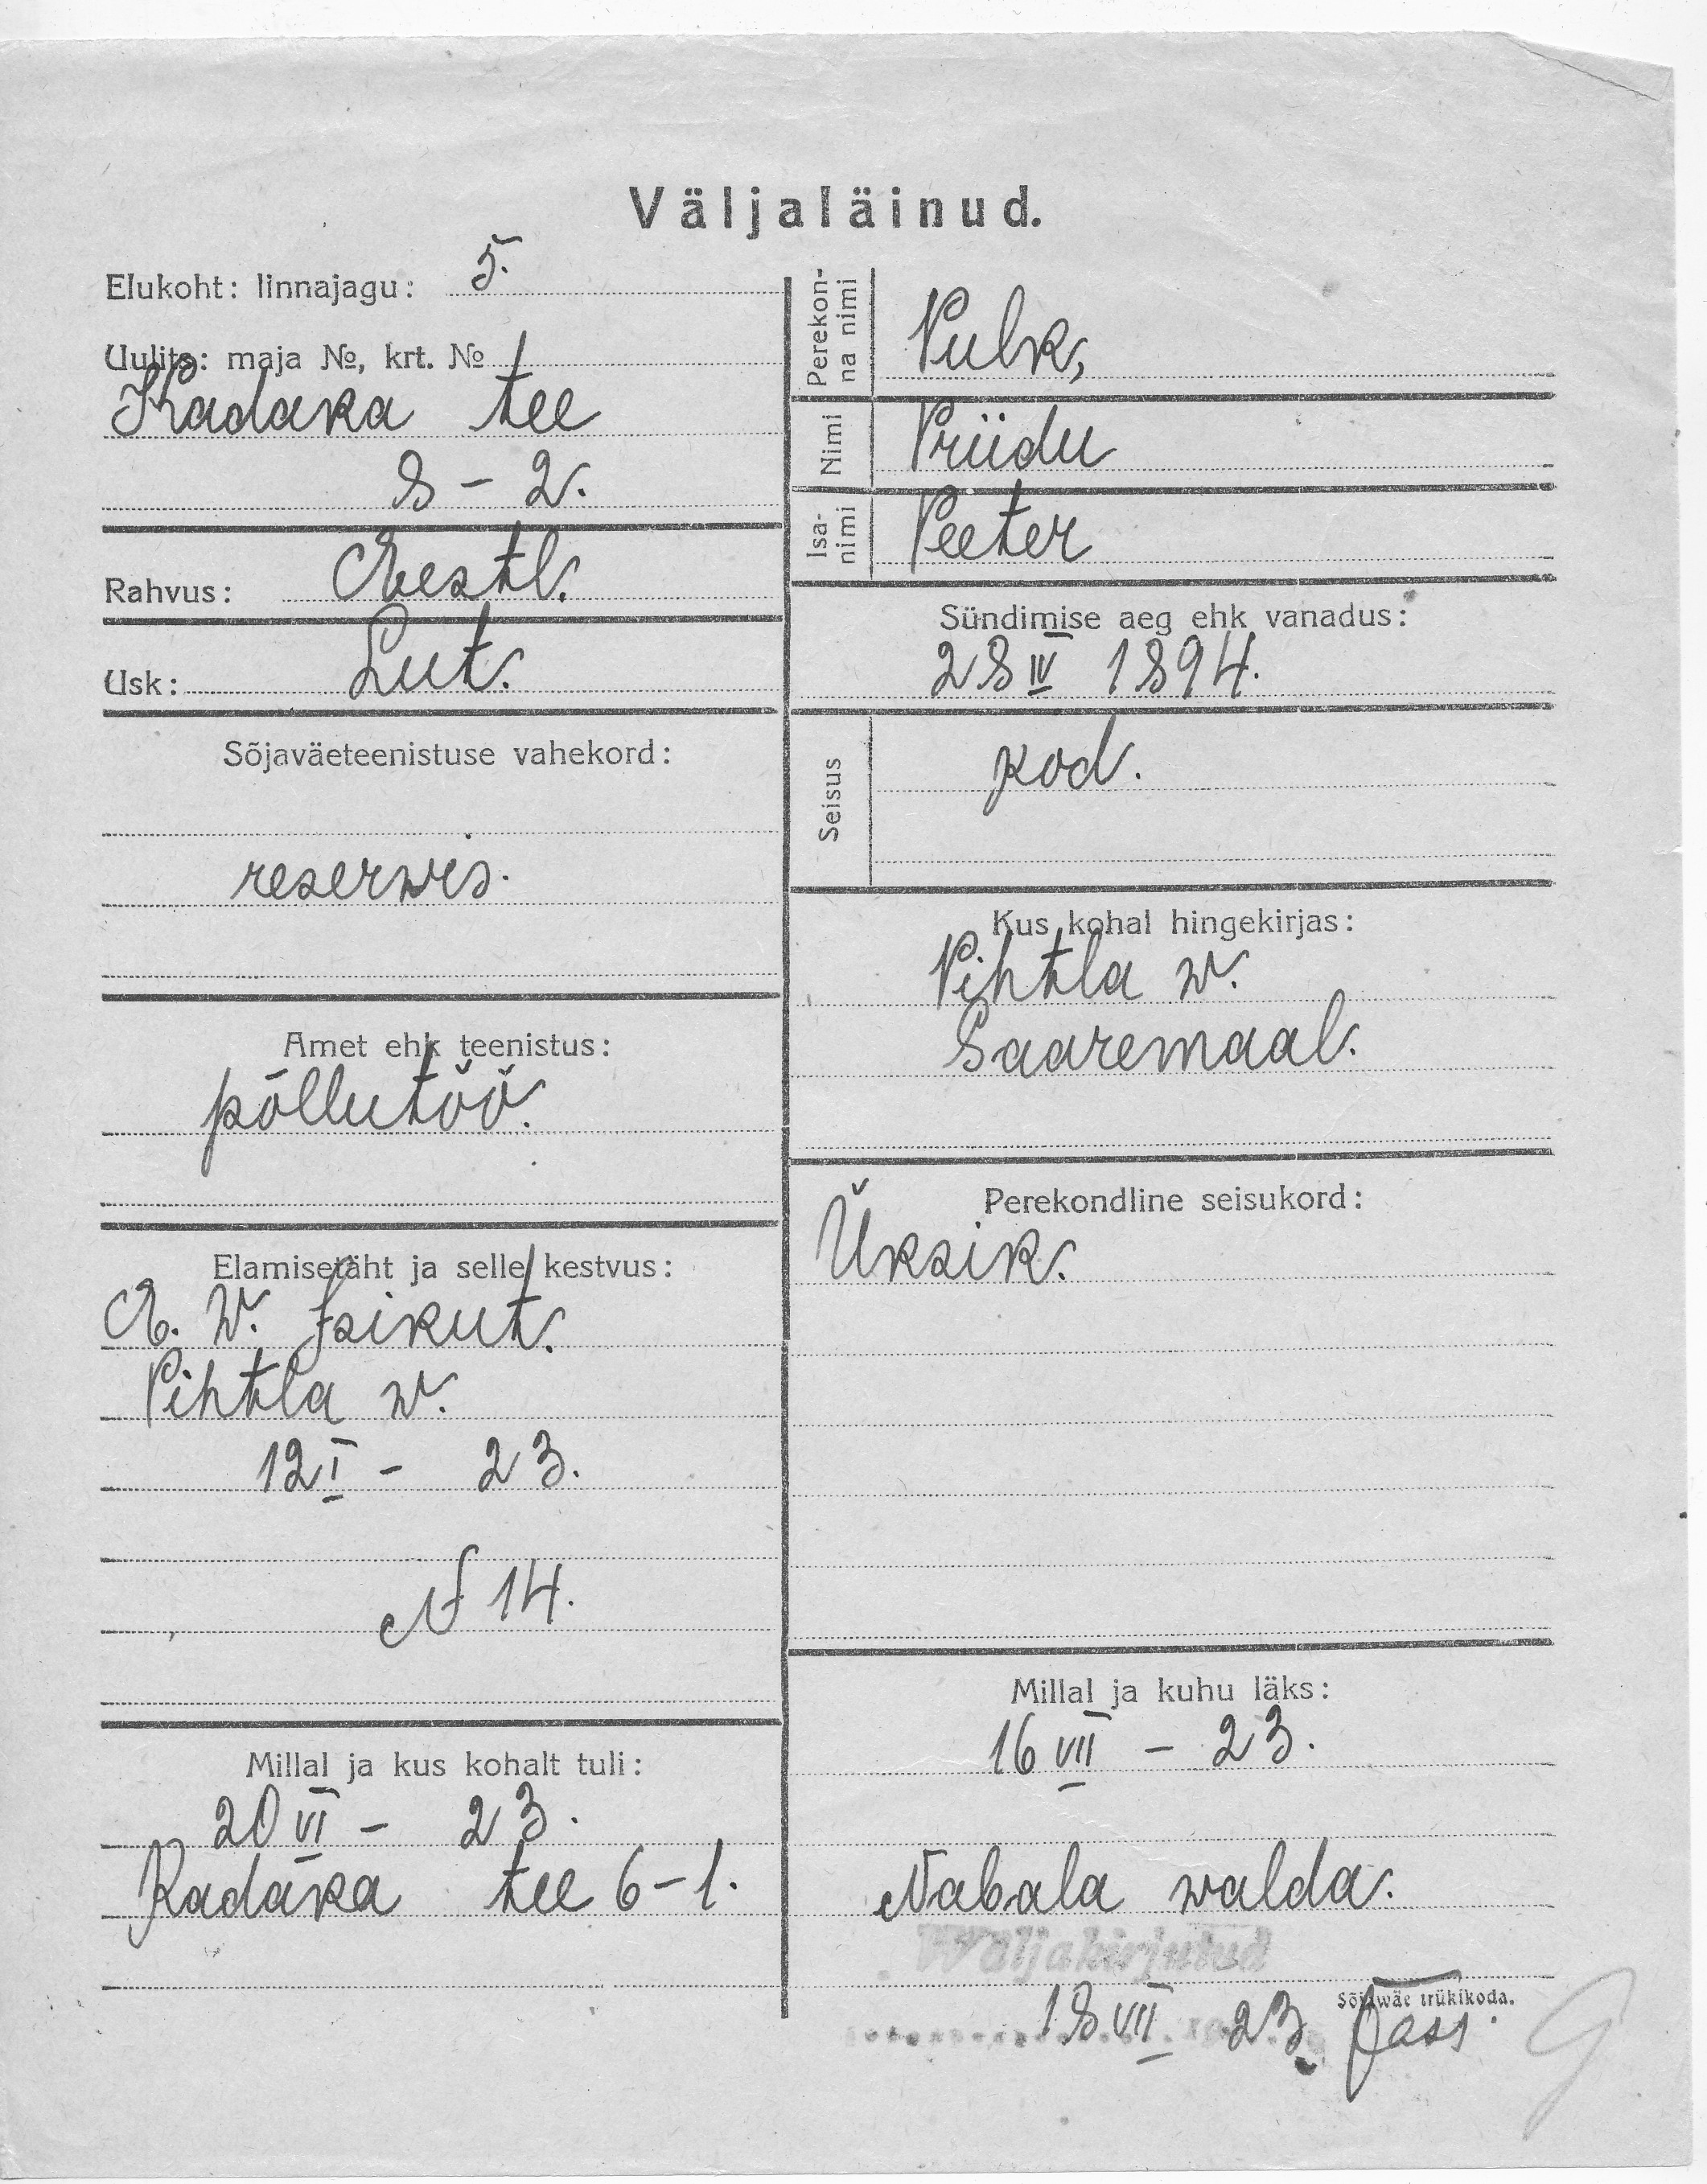 Väljaläinud.
Elukoht: linnajagu: 5.
Uulits: maja №, krt. №
Kadaka tee
8 - 2.
Rahvus: Eestl.
Usk: Lut.
Sõjaväeteenistuse vahekord:
reserwis.
Amet ehk teenistus:
põllutöö.
Elamisetäht ja selle kestvus:
E. W. Isikut.
Pihtla w.
12 I - 23.
N 14.
Millal ja kus kohalt tuli:
20 VI - 23.
Kadaka tee 6-1.
Perekon-
na nimi
Pulk,
Nimi Priidu
Isa-
nimi
Peeter
Sündimise aeg ehk vanadus:
28 IV 1894.
Seisus kod.
Kus kohal hingekirjas:
Pihtla w.
Saaremaal.
Perekondline seisukord:
Üksik.
Millal ja kuhu läks:
16 VII - 23.
Nabala walda.
Wäljakirjutud
Sõjawäe trükikoda.
18 VII 23